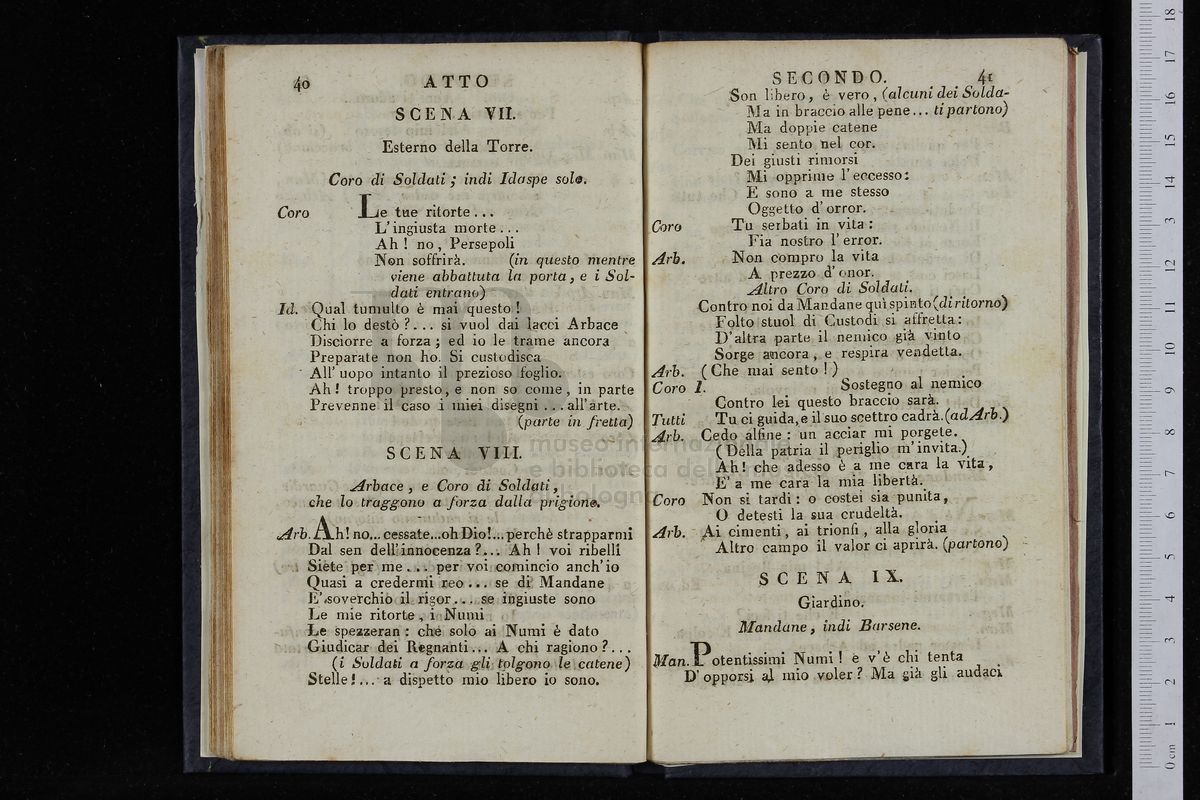 40 ATTO
SCENA VII.
Esterno della Torre.
Coro di Soldati ; indi Idaspe solo.
Coro Le tue ritorte...
L'ingiusta morte...
Ah ! no, Persepoli
Non soffrirà. (in questo mentre
viene abbattuta la porta, e i Sol-
dati entrano)
Id. Qual tumulto è mai questo !
Chi lo destò ?... si vuol dai lacci Arbace
Disciorre a forza ; ed io le trame ancora
Preparate non ho. Si custodisca
All' uopo intanto il prezioso foglio.
Ah ! troppo presto, e non so come, in parte
Prevenne il caso i miei disegni ... all'arte.
(parte in fretta)
SCENA VIII.
Arbace, e Coro di Soldati,
che lo traggono a forza dalla prigione.
Arb. Ah! no... cessate...oh Dio!...perchè strapparmi
Dal sen dell'innocenza ?... Ah ! voi ribelli
Siete per me... per voi comincio anch'io
Quasi a credermi reo... se di Mandane
E' soverchio il rigor... se ingiuste sono
Le mie ritorte, i Numi
Le spezzeran : che solo ai Numi è dato
Giudicar dei Regnanti... A chi ragiono ?...
(i Soldati a forza gli tolgono le catene)
Stelle !... a dispetto mio libero io sono.
SECONDO. 41
Son libero, è vero, (alcuni dei Solda-
Ma in braccio alle pene... ti partono)
Ma doppie catene
Mi sento nel cor.
Dei giusti rimorsi
Mi opprime l'eccesso :
E sono a me stesso
Oggetto d'orror.
Coro Tu serbati in vita :
Fia nostro l'error.
Arb. Non compro la vita
A prezzo d'onor.
Altro Coro di Soldati.
Contro noi da Mandane quì spinto (di ritorno)
Folto stuol di Custodi si affretta :
D'altra parte il nemico già vinto
Sorge ancora, e respira vendetta.
Arb. (Che mai sento !)
Coro I. Sostegno al nemico
Contro lei questo braccio sarà.
Tutti Tu ci guida, e il suo scettro cadrà. (ad Arb.)
Arb. Cedo alfine : un acciar mi porgete.
(Della patria il periglio m'invita.)
Ah ! che adesso è a me cara la vita,
E' a me cara la mia libertà.
Coro Non si tardi : o costei sia punita,
O detesti la sua crudeltà.
Arb. Ai cimenti, ai trionfi, alla gloria
Altro campo il valor ci aprirà. (partono)
SCENA IX.
Giardino.
Mandane, indi Barsene.
Man. Potentissimi Numi ! e v'è chi tenta
D'opporsi al mio voler ? Ma già gli audaci